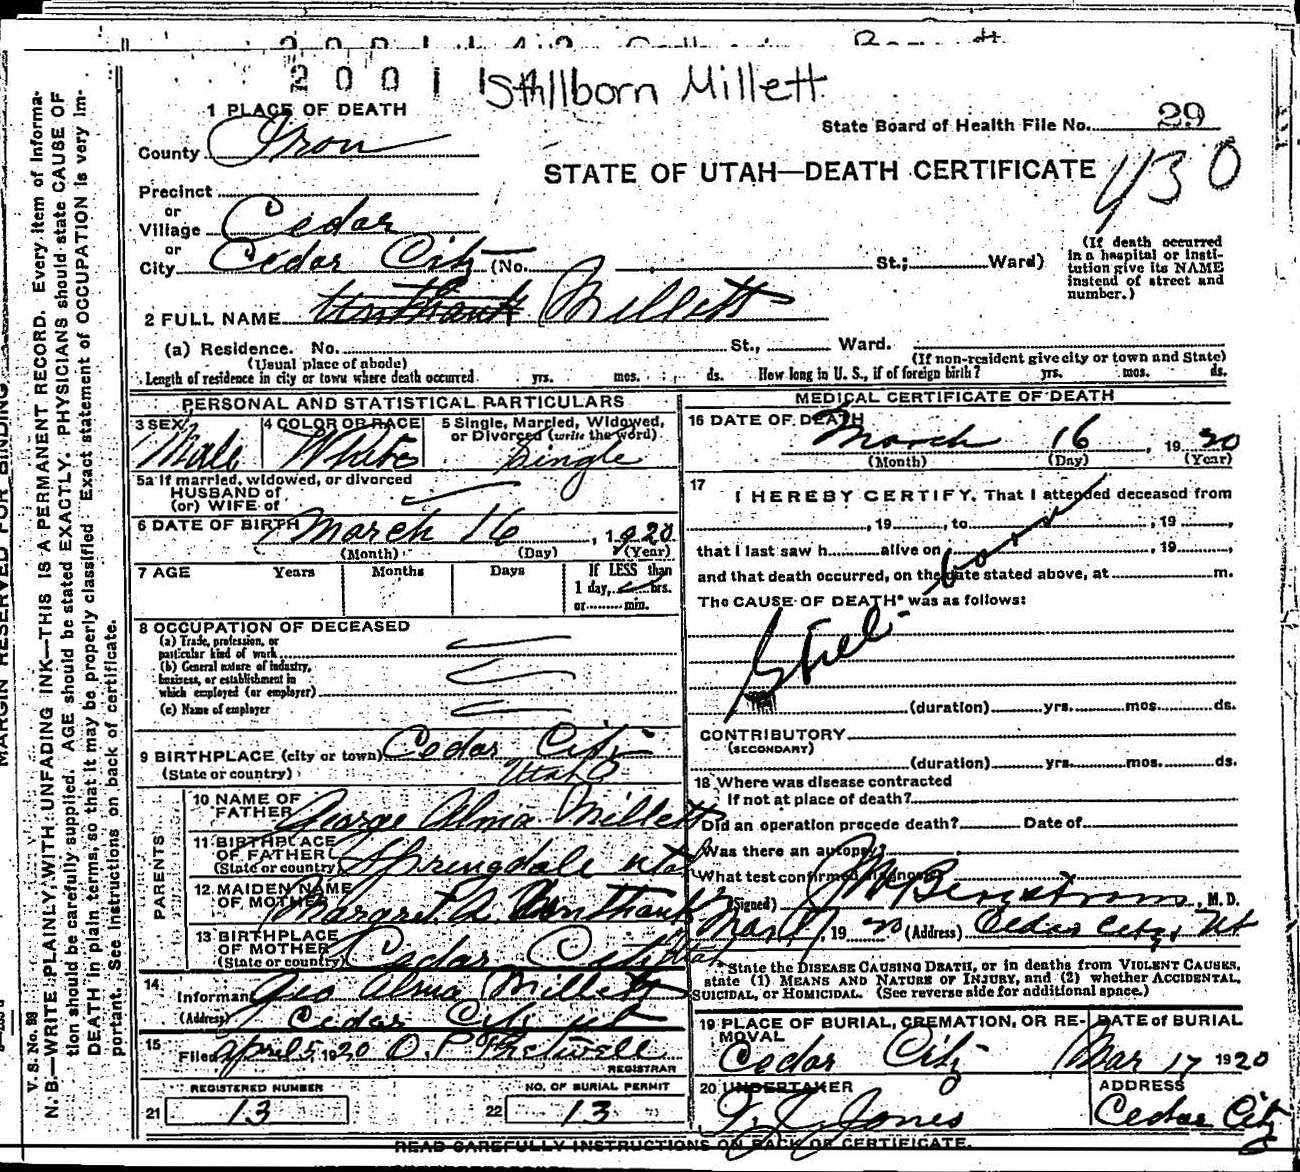 2001 Stillborn Millett
1 PLACE OF DEATH
State Board of Health File No. 29
430
County Iron
STATE OF UTAH—DEATH CERTIFICATE
Precinct
or
Village Cedar
or
City Cedar City (No. St.; Ward)
(If death occurred
in a hospital or insti-
tution give its NAME
instead of street and
number.)
2 FULL NAME Unthank Millett
(a) Residence. No. St., Ward.
(Usual place of abode) (If non-resident give city or town and State)
Length of residence in city or town where death occurred yrs. mos. ds. How long in U. S., if of foreign birth? yrs. mos. ds.
PERSONAL AND STATISTICAL PARTICULARS
3 SEX Male
4 COLOR OR RACE White
5 Single, Married, Widowed,
or Divorced (write the word)
Single
5a If married, widowed, or divorced
HUSBAND of
(or) WIFE of
6 DATE OF BIRTH March 16, 1920
(Month) (Day) (Year)
7 AGE Years Months Days If LESS than
1 day, hrs.
or min.
8 OCCUPATION OF DECEASED
(a) Trade, profession, or
particular kind of work
(b) General nature of industry,
business, or establishment in
which employed (or employer)
(c) Name of employer
9 BIRTHPLACE (city or town) Cedar City
(State or country) Utah
PARENTS
10 NAME OF
FATHER George Alma Millett
11 BIRTHPLACE
OF FATHER
(State or country) Springdale Utah
12 MAIDEN NAME
OF MOTHER Margaret A Unthank
13 BIRTHPLACE
OF MOTHER
(State or country) Cedar City Utah
14
Informant Geo Alma Millett
(Address) Cedar City Ut
15
Filed April 5 1920
REGISTRAR
REGISTERED NUMBER
21 13
NO. OF BURIAL PERMIT
22 13
MEDICAL CERTIFICATE OF DEATH
16 DATE OF DEATH
March 16, 1920
(Month) (Day) (Year)
17
I HEREBY CERTIFY, That I attended deceased from
, 19 , to , 19 ,
that I last saw h alive on , 19 ,
and that death occurred, on the date stated above, at m.
The CAUSE OF DEATH* was as follows:
Still-born
(duration) yrs. mos. ds.
CONTRIBUTORY
(SECONDARY)
(duration) yrs. mos. ds.
18 Where was disease contracted
If not at place of death?
Did an operation precede death? Date of
Was there an autopsy
What test confirmed diagnosis
(Signed) Bergstrom, M. D.
Mar 17, 1920 (Address) Cedar City, Ut
State the DISEASE CAUSING DEATH, or in deaths from VIOLENT CAUSES,
state (1) MEANS AND NATURE OF INJURY, and (2) whether ACCIDENTAL,
SUICIDAL, or HOMICIDAL. (See reverse side for additional space.)
19 PLACE OF BURIAL, CREMATION, OR RE-
MOVAL
Cedar City
DATE of BURIAL
Mar 17 1920
20 UNDERTAKER
Jones
ADDRESS
Cedar City
READ CAREFULLY INSTRUCTIONS ON BACK OF CERTIFICATE.
MARGIN RESERVED FOR BINDING
V. S. No. 98
N. B.—WRITE PLAINLY, WITH UNFADING INK—THIS IS A PERMANENT RECORD. Every item of Informa-
tion should be carefully supplied. AGE should be stated EXACTLY. PHYSICIANS should state CAUSE OF
DEATH in plain terms, so that it may be properly classified. Exact statement of OCCUPATION is very im-
portant. See instructions on back of certificate.